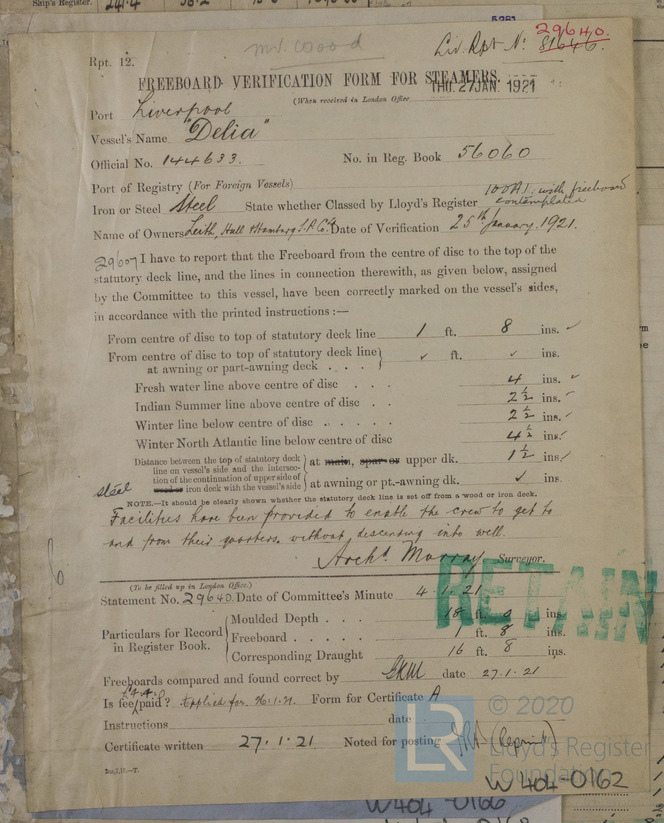 Ship's Register.
5281
Mr. Wood
29640.
Liv. Rpt No: 81646.
Rpt. 12.
FREEBOARD VERIFICATION FORM FOR STEAMERS.
THU. 27 JAN. 1921
(When received in London Office
Port Liverpool
Vessel's Name "Delia"
Official No. 144633. No. in Reg. Book 56060
Port of Registry (For Foreign Vessels)
100A1. with freeboard
contemplated
Iron or Steel Steel State whether Classed by Lloyd's Register
Name of Owners Leith, Hull & Hamburg S.P. Co. Date of Verification 25th January. 1921.
29607 I have to report that the Freeboard from the centre of disc to the top of the
statutory deck line, and the lines in connection therewith, as given below, assigned
by the Committee to this vessel, have been correctly marked on the vessel's sides,
in accordance with the printed instructions :—
From centre of disc to top of statutory deck line 1 ft. 8 ins. ✓
From centre of disc to top of statutory deck line
at awning or part-awning deck . . . ✓ ft. ✓ ins.
Fresh water line above centre of disc . . . 4 ins. ✓
Indian Summer line above centre of disc . . 2 1/2 ins. ✓
Winter line below centre of disc . . . . . 2 1/2 ins. ✓
Winter North Atlantic line below centre of disc 4 1/2 ins. ✓
Distance between the top of statutory deck
line on vessel's side and the intersec-
tion of the continuation of upper side of
steel wood or iron deck with the vessel's side
at main, spar or upper dk. 1 1/2 ins. ✓
at awning or pt.-awning dk. ✓ ins.
NOTE.—It should be clearly shown whether the statutory deck line is set off from a wood or iron deck.
Facilities have been provided to enable the crew to get to
and from their quarters without descending into well.
Archd. Murray Surveyor.
(To be filled up in London Office.)
RETAIN
Statement No. 29640. Date of Committee's Minute 4.1.21
Particulars for Record
in Register Book.
Moulded Depth . . . 18 ft. 0 ins.
Freeboard . . . . . 1 ft. 8 ins.
Corresponding Draught 16 ft. 8 ins.
Freeboards compared and found correct by date 27.1.21
Is fee paid? Applied for 26.1.21. Form for Certificate A
Instructions date
Certificate written 27.1.21 Noted for posting
LR
© 2020
Lloyd's Register
Foundation
W404-0162
W404-0166